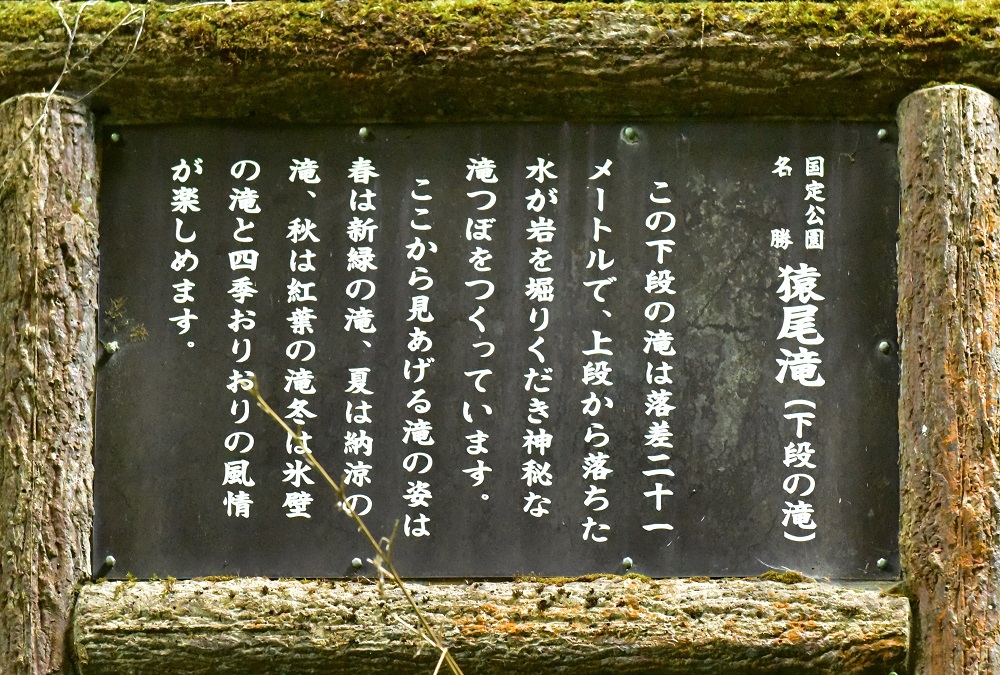 国定公園
名勝
猿尾滝(下段の滝)
この下段の滝は落差二十一
メートルで、上段から落ちた
水が岩を堀りくだき神秘な
滝つぼをつくっています。
ここから見あげる滝の姿は
春は新緑の滝、夏は納涼の
滝、秋は紅葉の滝冬は氷壁
の滝と四季おりおりの風情
が楽しめます。